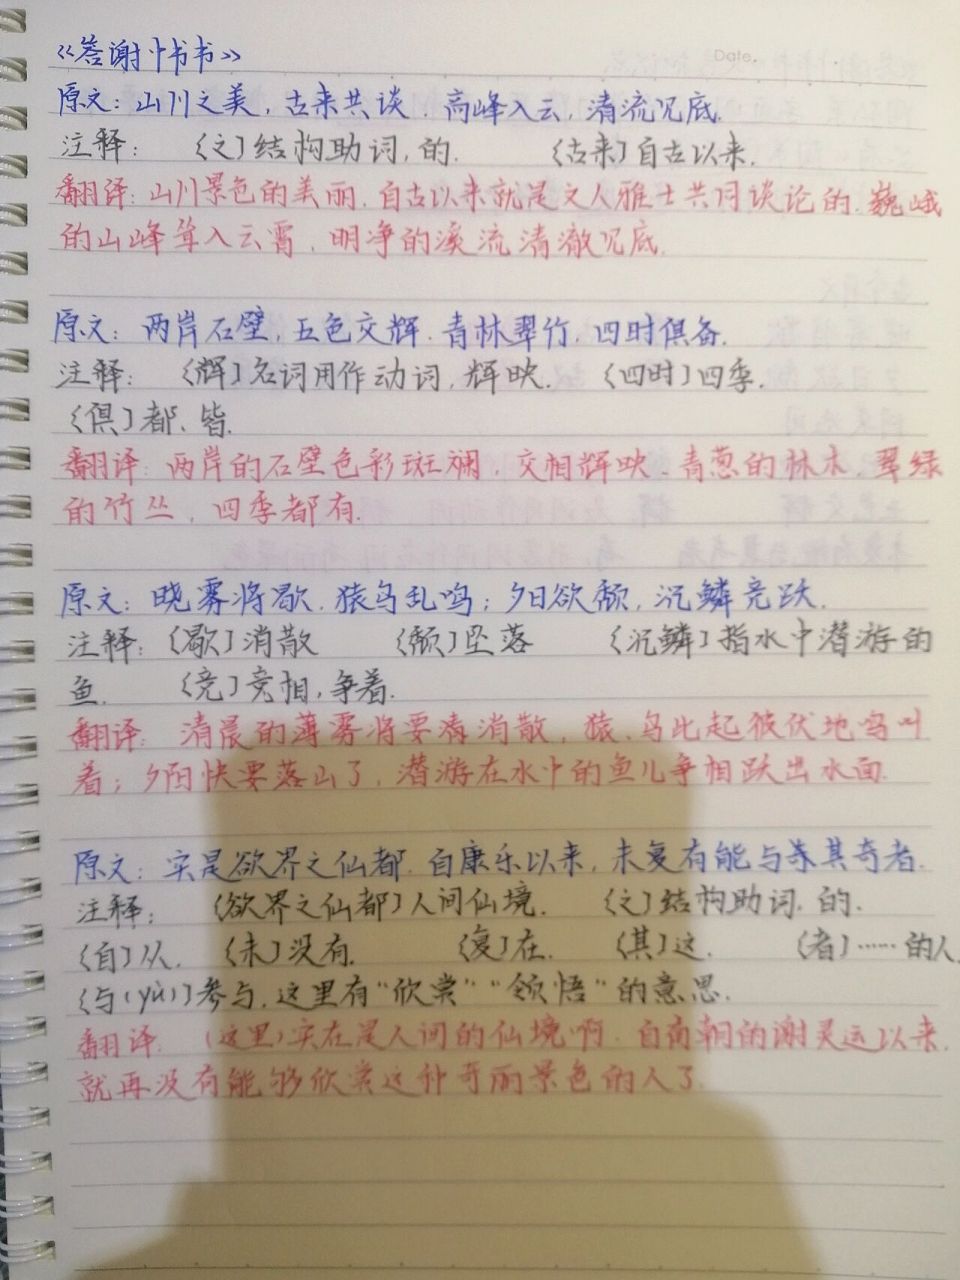 《答谢中书书》
Date.
原文：山川之美，古来共谈．高峰入云，清流见底．
注释：〈之〕结构助词，的．〈古来〕自古以来．
翻译：山川景色的美丽，自古以来就是文人雅士共同谈论的．巍峨
的山峰耸入云霄，明净的溪流清澈见底．
原文：两岸石壁，五色交辉．青林翠竹，四时俱备．
注释：〈辉〕名词用作动词，辉映．〈四时〕四季．
〈俱〕都、皆．
翻译：两岸的石壁色彩斑斓，交相辉映．青葱的林木，翠绿
的竹丛，四季都有．
原文：晓雾将歇，猿鸟乱鸣；夕日欲颓，沉鳞竞跃．
注释：〈歇〕消散 〈颓〕坠落 〈沉鳞〕指水中潜游的
鱼．〈竞〕竞相，争着．
翻译：清晨的薄雾将要消散，猿、鸟此起彼伏地鸣叫
着；夕阳快要落山了，潜游在水中的鱼儿争相跃出水面．
原文：实是欲界之仙都．自康乐以来，未复有能与其奇者．
注释：〈欲界之仙都〕人间仙境．〈之〕结构助词，的．
〈自〕从．〈未〕没有．〈复〕在．〈其〕这．〈者〕……的人
〈与(yù)〕参与，这里有“欣赏”“领悟”的意思．
翻译：（这里）实在是人间的仙境啊．自南朝的谢灵运以来，
就再没有能够欣赏这种奇丽景色的人了．